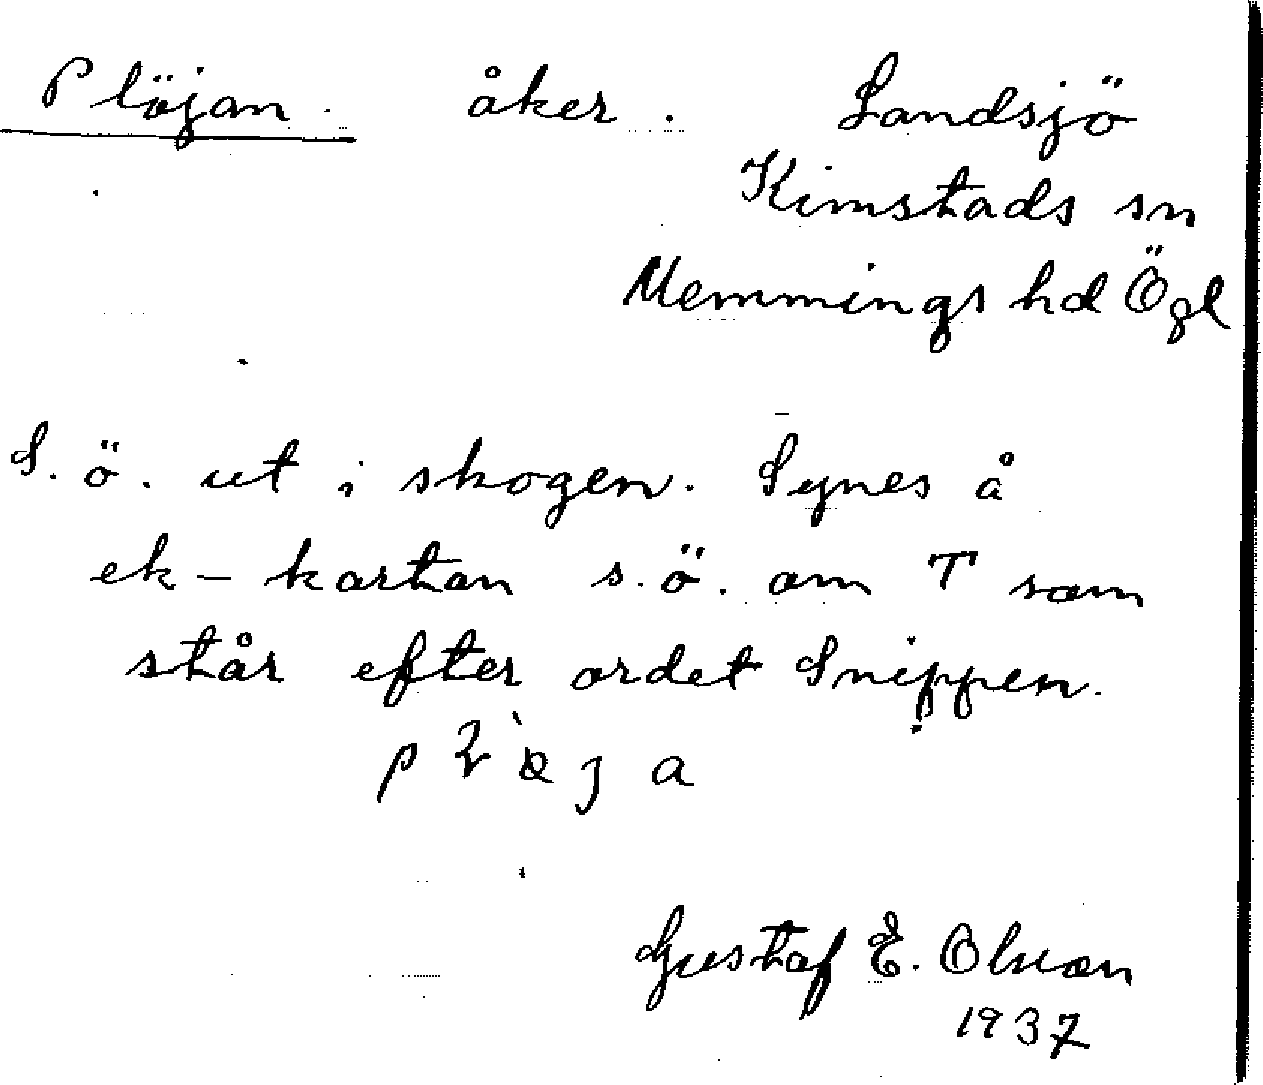 Plöjan. åker. Landsjö
Kimstads sn
Memmings hd Ögl
S. ö. ut i skogen. Synes å
ek-kartan s. ö. om T som
står efter ordet Snippen.
Gustaf E. Olsson
1937